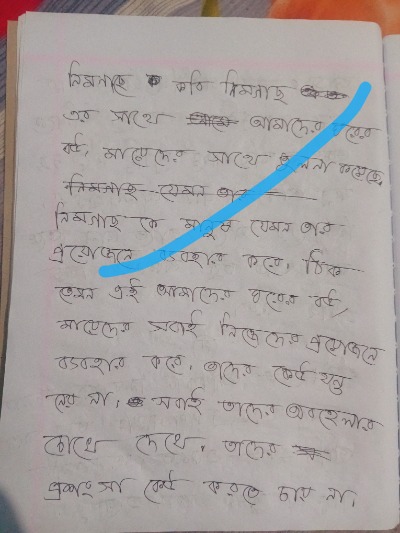 নিমগাছে কবি নিমগাছ
এর সাথে আমাদের ঘরের
বউ, মায়েদের সাথে তুলনা করেছে,
নিমগাছ যেমন তার
নিমগাছ কে মানুষ যেমন তার
প্রয়োজনে ব্যবহার করে, ঠিক
তেমন এই আমাদের ঘরের বউ,
মায়েদের সবাই নিজেদের প্রয়োজনে
ব্যবহার করে, তাদের কেউ যত্ন
নেয় না, সবাই তাদের অবহেলার
চোখে দেখে, তাদের
প্রশংসা কেউ করতে চায় না,